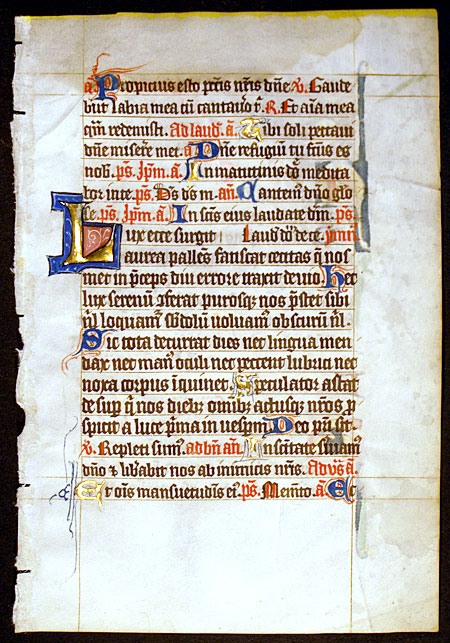 a. Propicius esto pctis nris dne. V. Gaude
but labia mea cu cantavo t. R. Et aia mea
qm redemisti. Ad laud. a. Tibi soli peccavi
dne misere mei. a. Dne refugiu tu factus es
nob. ps. Ipm. a. In matutinis dne medita
bor in te. ps. Ds ds m. an. Cantem dno glo
se. ps. Ipm. a. In scis eius laudate dm. ps.
Lux ecce surgit Laud. de ce. ymn
aurea pallens fatiscat cecitas que nos
met in preceps diu errore traxit devio. Hec
lux serenu conferat purosque nos prestet sibi
nil loquamur subdolu volvam obscuru nil.
Sic tota decurrat dies nec lingua men
dax nec man oculi nec peccent lubrici nec
noxa corpus inquinet. Speculator astat
desup qui nos dieb omib actusque nros p
spicit a luce prima in vesperu. Deo pri sit.
V. Repleti sum. ad bn an. In scitate sviam
dno & libabit nos ab inimicis nris. Ad vs. a.
Et ois mansuetudis ei. ps. Memto. a. Ec